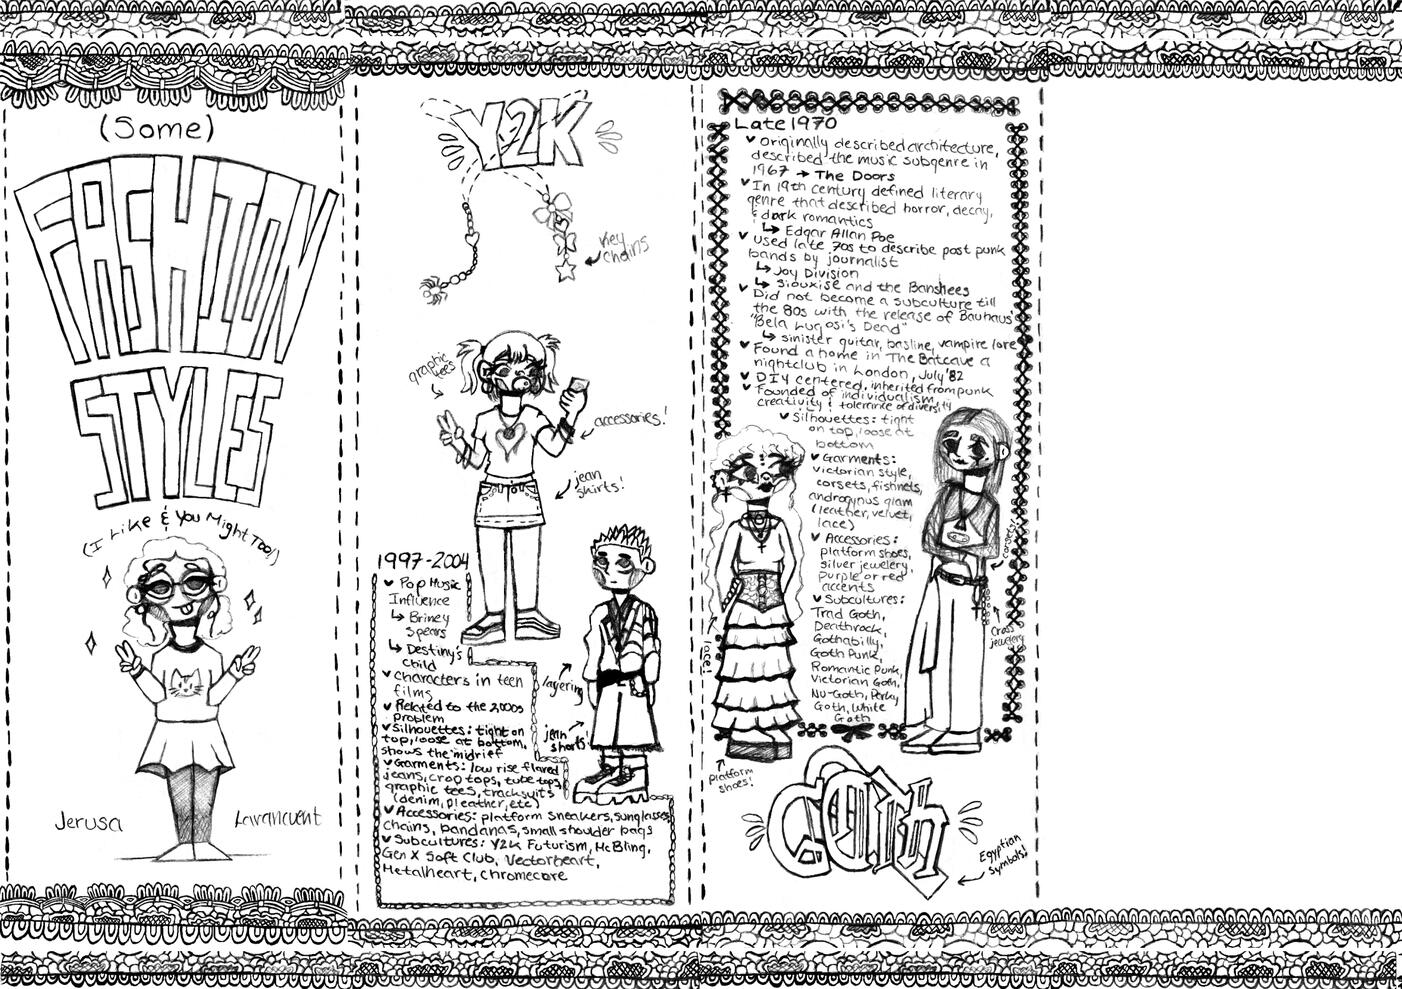 (Some)
FASHION
STYLES
(I Like & You Might Too!)
Jerusa
Y2K
Key
chains
graphic
tees
accessories!
jean
skirts!
1997-2004
Pop Music
Influence
↳ Briney
Spears
↳ Destiny's
Child
Characters in teen
films
Related to the 2000s
problem
Silhouettes: tight on
top, loose at bottom,
shows the midrief
Garments: low rise flared
jeans, crop tops, tube tops,
graphic tees, tracksuits
(denim, pleather, etc)
Accessories: platform sneakers, sunglasses,
chains, bandanas, small shoulder bags
Subcultures: Y2K Futurism, McBling,
Gen X Soft Club, Vectorheart,
Metalheart, chromecore
layering
jean
shorts!
Late 1970
originally described architecture,
described the music subgenre in
1967 → The Doors
In 19th century defined literary
genre that described horror, decay,
& dark romantics
↳ Edgar Allan Poe
Used late 70s to describe post punk
bands by journalist
↳ Joy Division
↳ Siouxise and the Banshees
Did not become a subculture till
the 80s with the release of Bauhaus'
"Bela Lugosi's Dead"
↳ sinister guitar, basline, vampire lore
Found a home in The Batcave a
nightclub in London, July '82
DIY centered, inherited from punk
Founded of individualism,
creativity & tolerance of diversity
Silhouettes: tight
on top, loose at
bottom
Garments:
victorian style,
corsets, fishnets,
androgynus glam
(leather, velvet,
lace)
Accessories:
platform shoes,
silver jewelery,
purple or red
accents
Subcultures:
Trad Goth,
Deathrock,
Gothabilly,
Goth Punk,
Romantic Punk,
Victorian Goth,
Nu-Goth, Perky
Goth, White
Goth
corsets!
Cross
jewelery
lace!
platform
shoes!
Goth
Egyptian
Symbols!